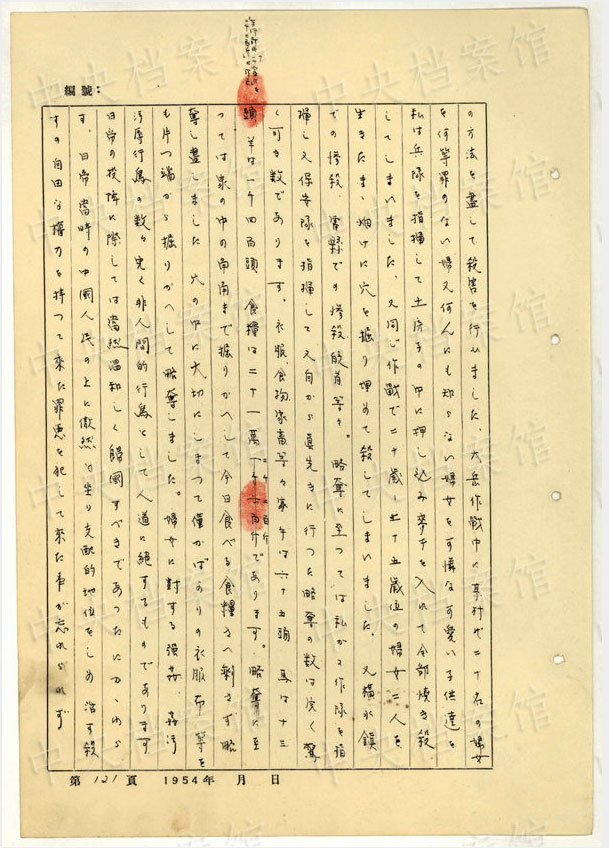 編號:
の方法を盡して殺害を行ひました、大岳作戰中に某村で二十名の婦女
を何等罪のない婦又何んにも知らない婦女を可憐な可愛い子供達を
私は兵隊を指揮して土窑子の中に押し込み麥稈を入れて全部燒き殺
してしまいました、又同じ作戰で二十歳〜二十五歳位の婦女二人を
生きたまゝ畑けに穴を掘り埋めて殺してしまいました。又橫水鎮
での慘殺、霍縣での慘殺 等々。略奪に至つては私が 作隊を指
揮し又保安隊を指揮して又自から真先きに行つた略奪の数は実く驚
く可き数であります。衣服、食物家畜等々家牛は六十五頭 馬は十三
頭 羊は一千四百頭 食糧は二十一萬 百斤であります。略奪に至
つては家の中の南南まで掘りかへして今日食べる食糧さへ剩さず略
奪し盡しました 穴の中に大切にしまつて僅かばかりの衣服布等を
も片つ端から掘りかへして略奪しました。婦女に對する強姦、姦污
污辱行為の数々実く非人間的行為として人道に絕するものであります
日帝の投降に際しては當然溫和しく歸國すべきであつたにかゝわら
す、日帝當時の中國人民の上に傲然と坐り支配的地位をしめ治す殺
すの自由な權力を持つて来た罪悪を犯して来た事が忘れられず
第 121 頁 1954年 月 日
中央档案馆